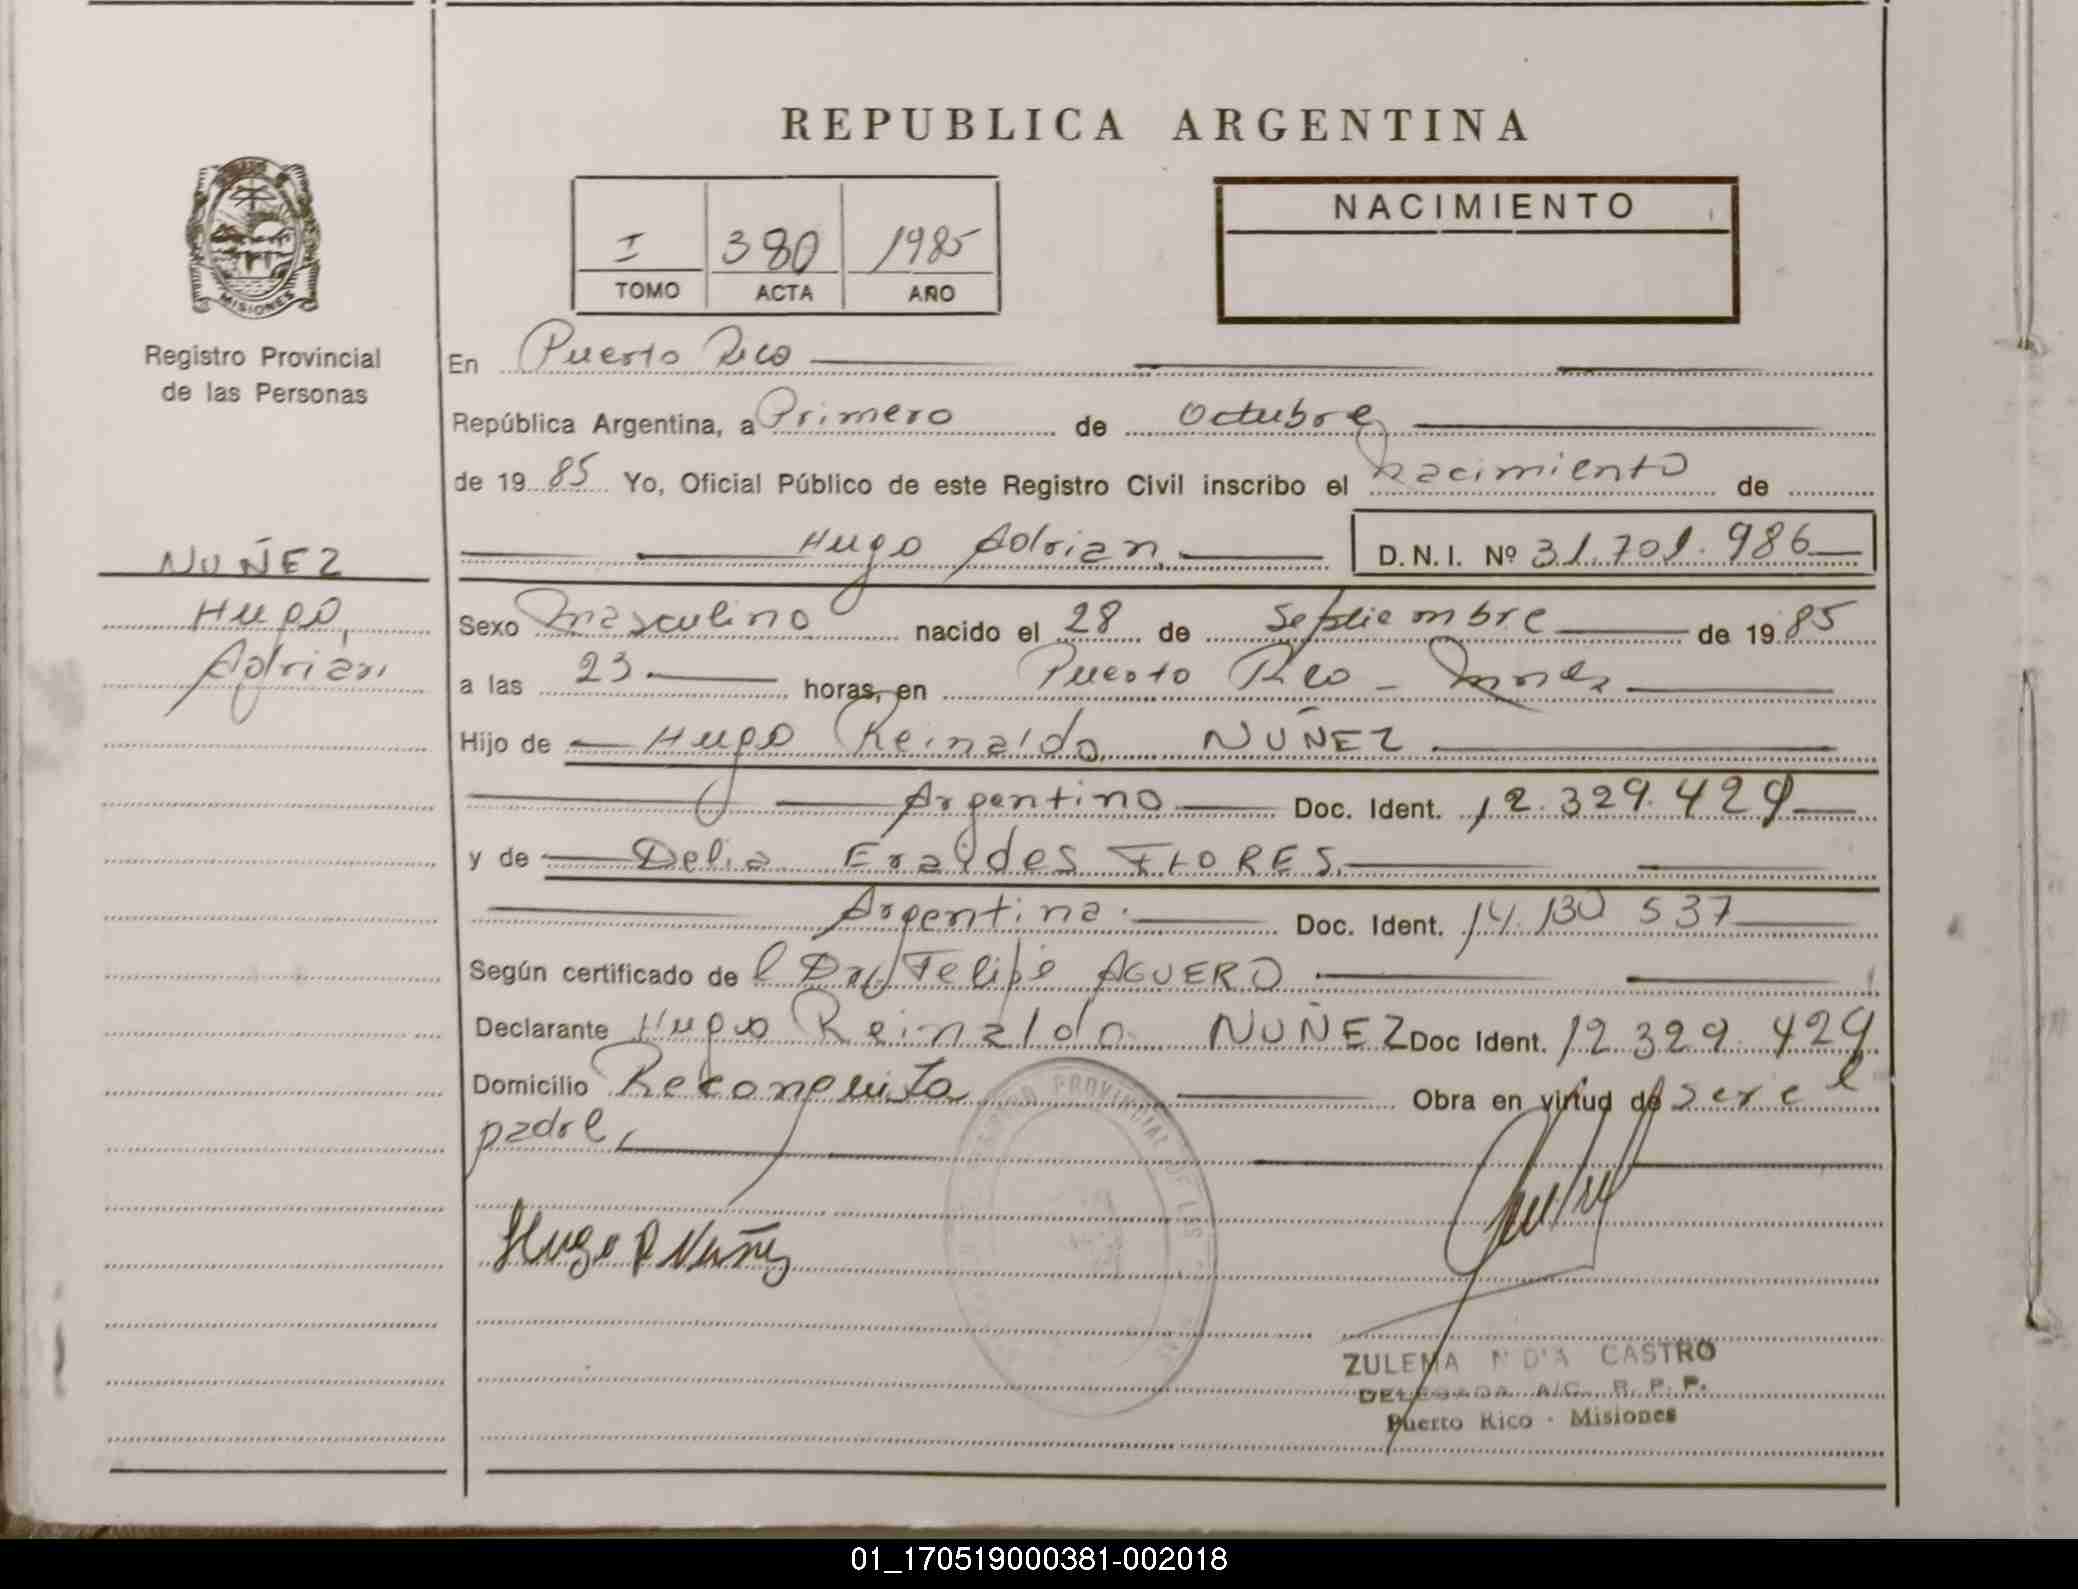 REPUBLICA ARGENTINA
MISIONES
Registro Provincial
de las Personas
I 380 1985
TOMO ACTA AÑO
NACIMIENTO
NUÑEZ
Hugo,
Adrián,
En Puerto Rico
República Argentina, a Primero de Octubre
de 1985 Yo, Oficial Público de este Registro Civil inscribo el nacimiento de
Hugo Adrian, D.N.I. Nº 31.701.986
Sexo masculino nacido el 28 de Septiembre de 1985
a las 23 horas, en Puerto Rico - Mnes
Hijo de Hugo Reinaldo NUÑEZ
Argentino Doc. Ident. 12.329.429
y de Delia Eraldes FLORES.
Argentina. Doc. Ident. 14.130 537
Según certificado de l Dr. Felipe AGUERO
Declarante Hugo Reinaldo NUÑEZ Doc Ident. 12 329. 429
Domicilio Reconquista Obra en virtud de ser el
padre,
Hugo R Nuñez
ZULEMA CASTRO
DELEGADA A/C. R. P. P.
Puerto Rico - Misiones
01_170519000381-002018